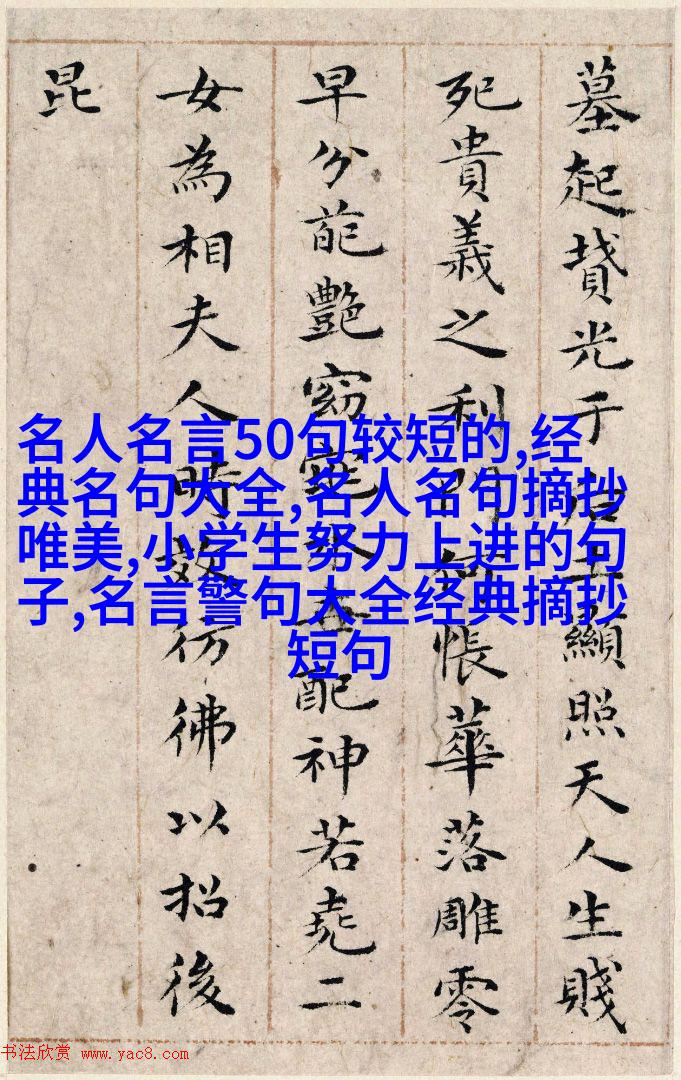 墓起墳光于后土顯照天人生賤
死貴義之利門何悵華落雕零
早分葩艷窈窕永世配神若堯二
女為相夫人時效仿彿以招後
昆
名人名言50句较短的,经
典名句大全,名人名句摘抄
唯美,小学生努力上进的句
子,名言警句大全经典摘抄
短句
书法欣赏 www.yac8.com